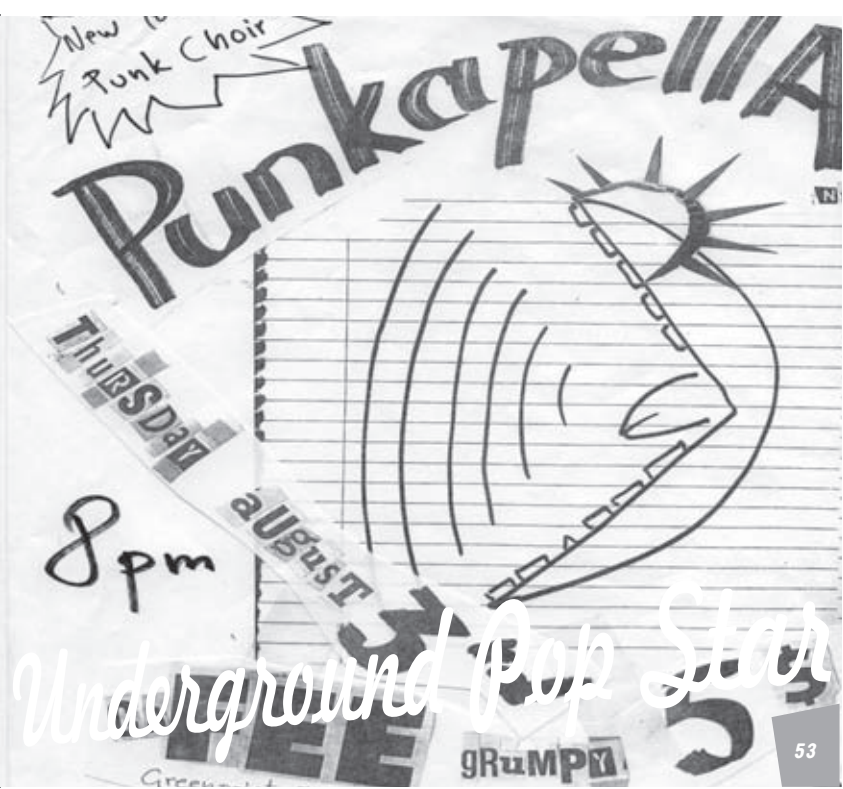 New
Punk Choir
PunkapellA
ThuRSDay
aUgusT 3
8pm
Underground Pop Star
gRuMPY
53